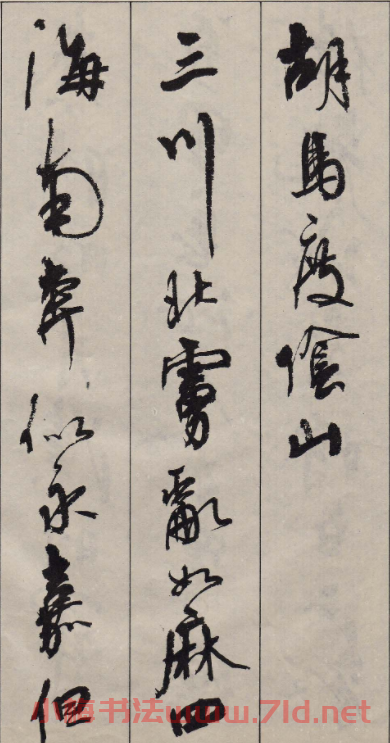 胡馬度陰山
三川北虜亂如麻四
海南奔似永嘉但
书法www.7ld.net